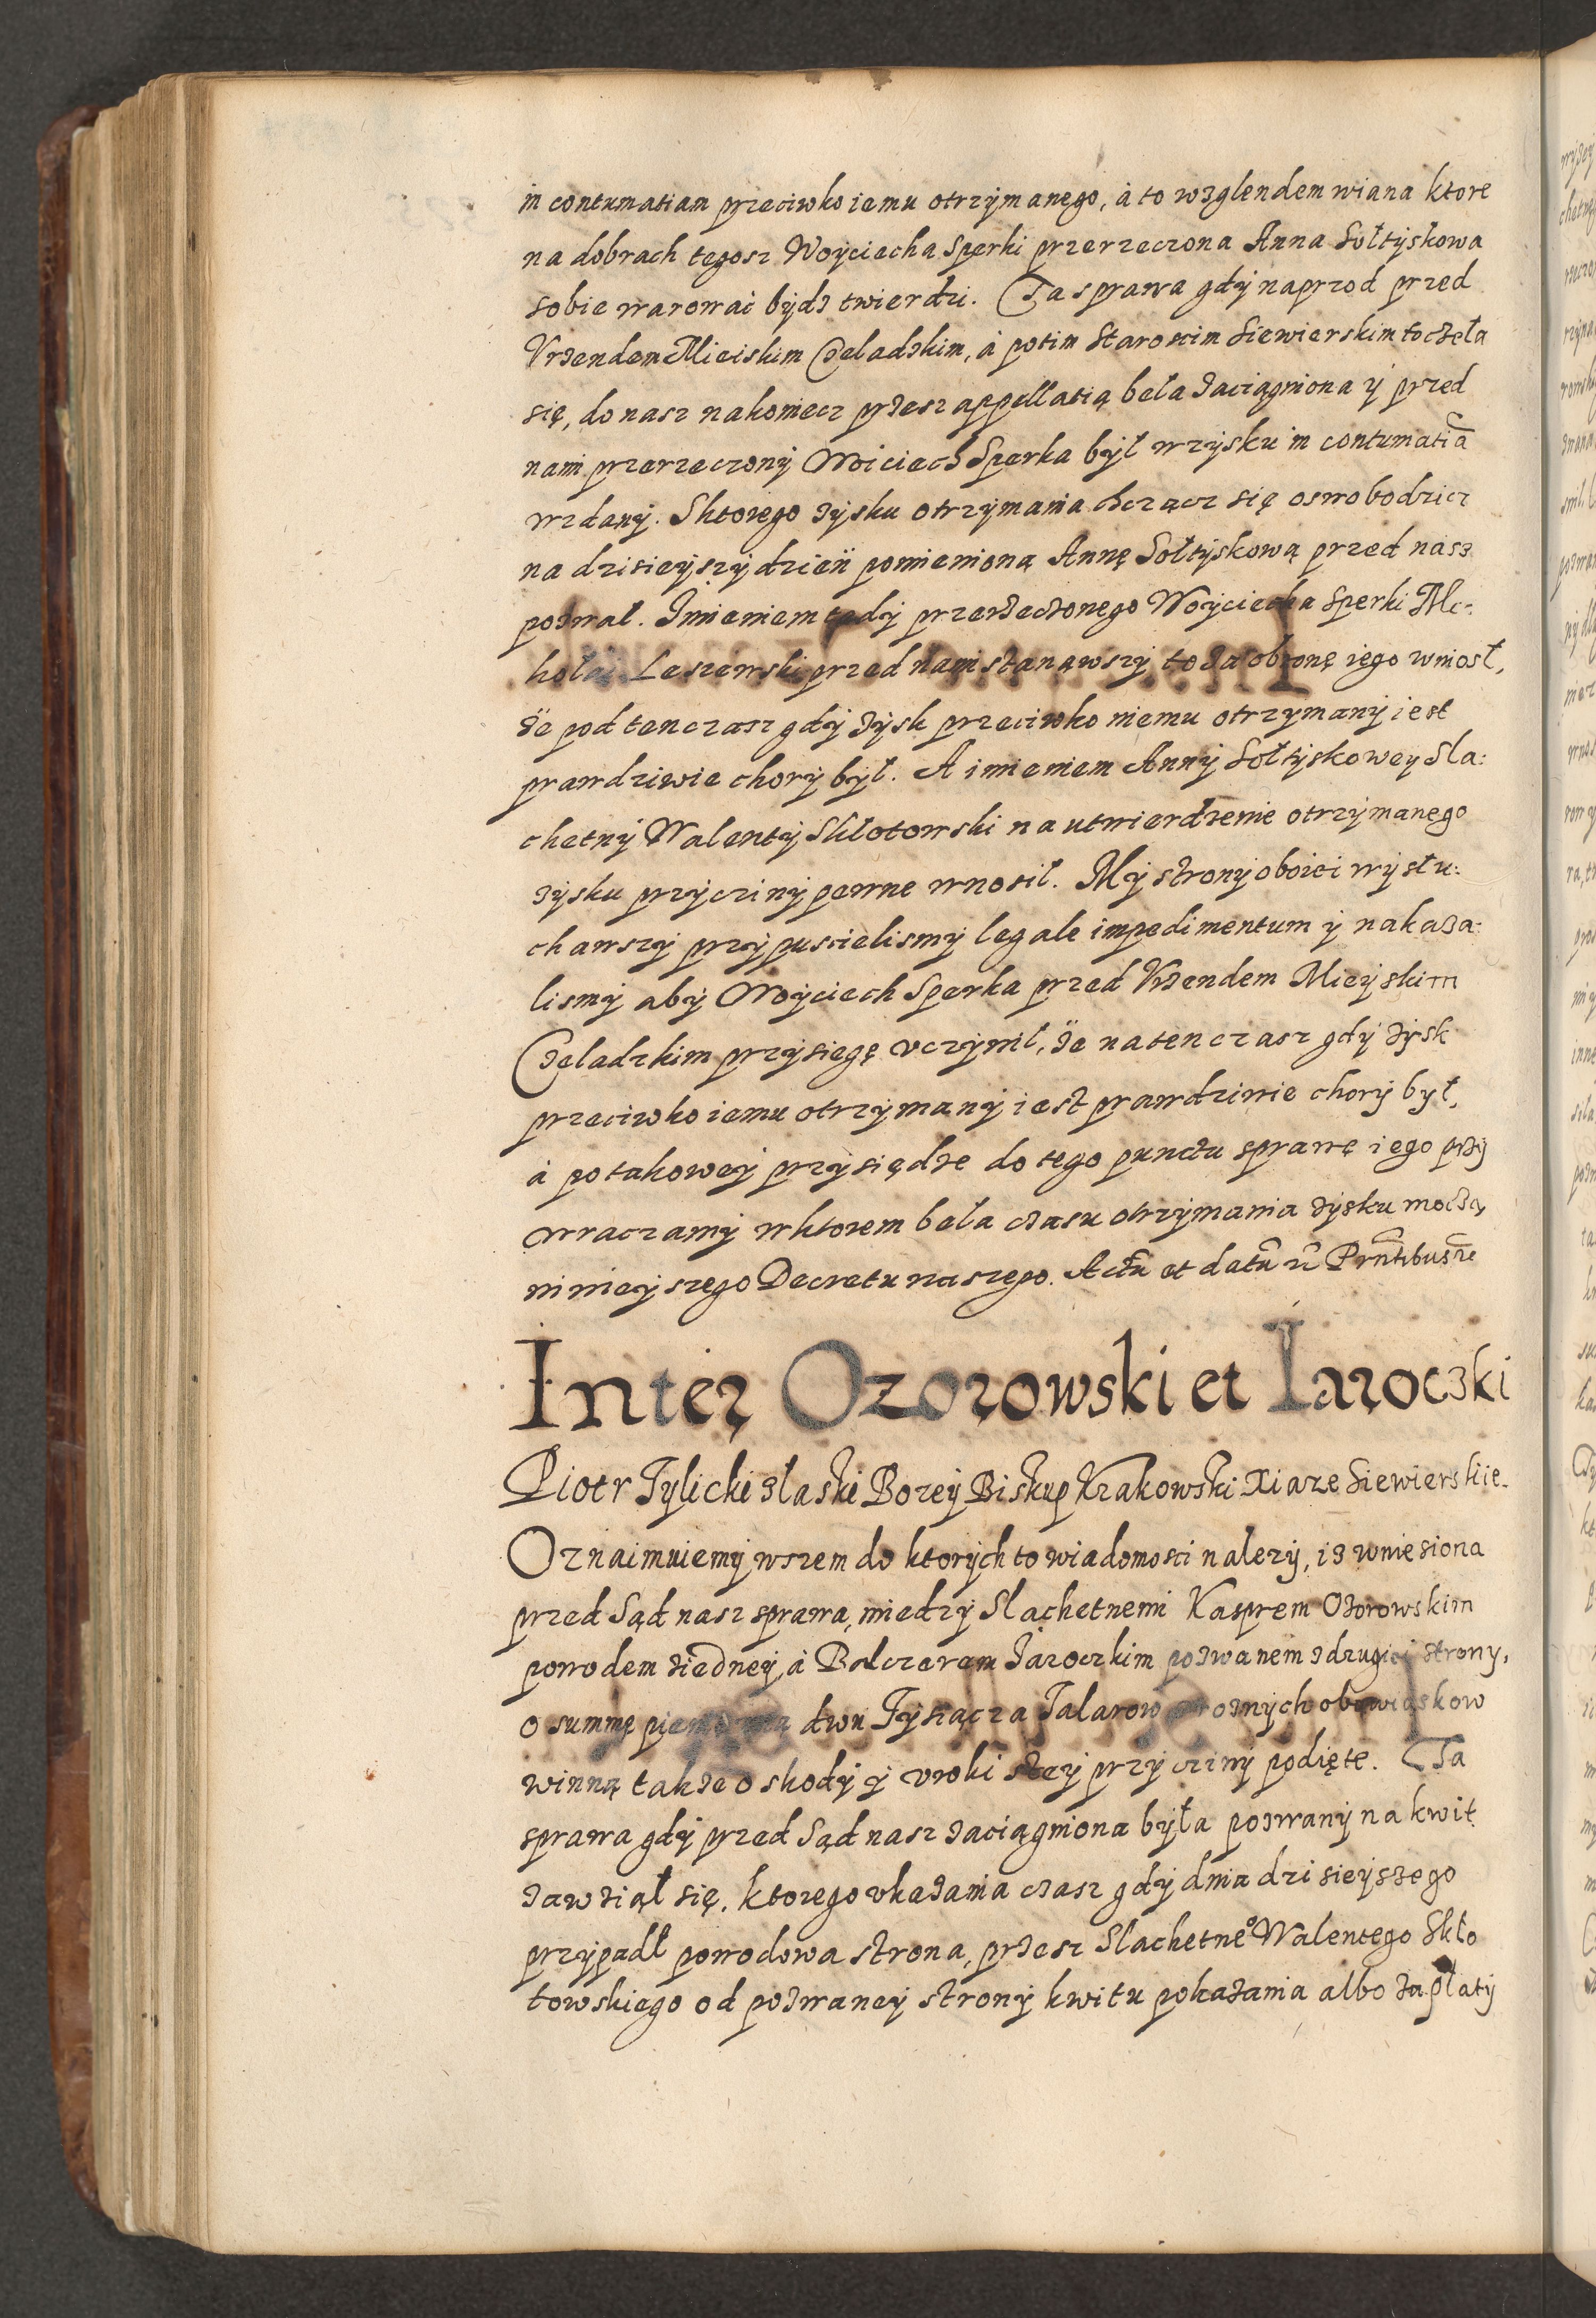 in contumatiam przeciwko iemu otrzymanego, à to wzglendem wiana ktore
na dobrach tegosz Woyciecha Sperki przerzeczona Anna Sołtyskowa
sobie warowaċ bydz twierdzi. Ta sprawa gdy naprzod przed
Vrzendem Mieiskim Czeladzkim, à potim Staroscim Siewierskim toczeła
się, do nasz nakoniecz przesz appellatią beła zaciągniona y przed
nami przerzeczony Woiciech Sperka był wzysku in contumatiã
wzdany. Sktorego zysku otrzymania chczącz się oswobodzicz
na dzisieyszy dzień pomienioną Annę Sołtyskową przed nasz
pozwał. Imieniem tedy przerzeczonego Woyciecha Sperki Mi:
kołai Leszewski przed nami stanąwszy to za obronę iego wniosł,
że pod ten czasz gdy zysk przeciwko niemu otrzymany iest
prawdziwie chory był. A imieniem Anny Sołtyskowey Sla:
chetny Walenty Skłotowski na utwierdzenie otrzymanego
zysku przycziny pewne wnosił. My strony oboiei wysłu:
chawszy przypuscielismy legale impedimentum y nakaza:
lismy aby Woyciech Sperka przed Vrzendem Mieyskim
Czeladzkim przysięgę vczynił, że na ten czasz gdy zysk
przeciwko iemu otrzymany iest prawdziwie chory był,
à po takowey przysiędze do tego punctu sprawę iego przy
wraczamy w ktorem beła czasu otrzymania zysku moczą
ninieyszego Decretu naszego. Actũ et datũ ũ Prñtibus ẽ
Inter Ozorowski et Iaroczki
Piotr Tylicki zlaski Bozey Biskup Krakowski Xiaze Siewierskie.
Oznaimuiemy wszem do ktorych to wiadomosci nalezy, iz wniesiona
przed Sąd nasz sprawa, miedzy Slachetnemi Kasprem Ozorowskim
powodem ziedney, à Balczerem Jaroczkim pozwanem zdrugiei strony,
o summę dwu Tysiącza Talarow obowiąskow
winną takze o skody y vroki stey przycziny podięte. Ta
sprawa gdy przed Sąd nasz zaciągniona była pozwany na kwit
zawziął się, ktorego vkazania czasz gdy dnia dzisieyszego
przypadł powodowa strona, przesz Slachetne° Walentego Skło
towskiego od pozwaney strony kwitu pokazania albo zapłaty